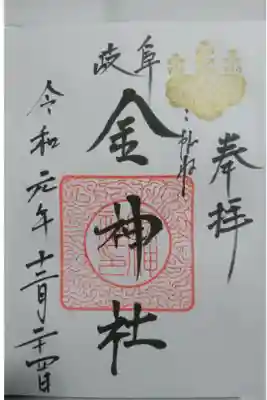 奉拝
こがね
岐阜
金神社
令和元年十二月二十四日